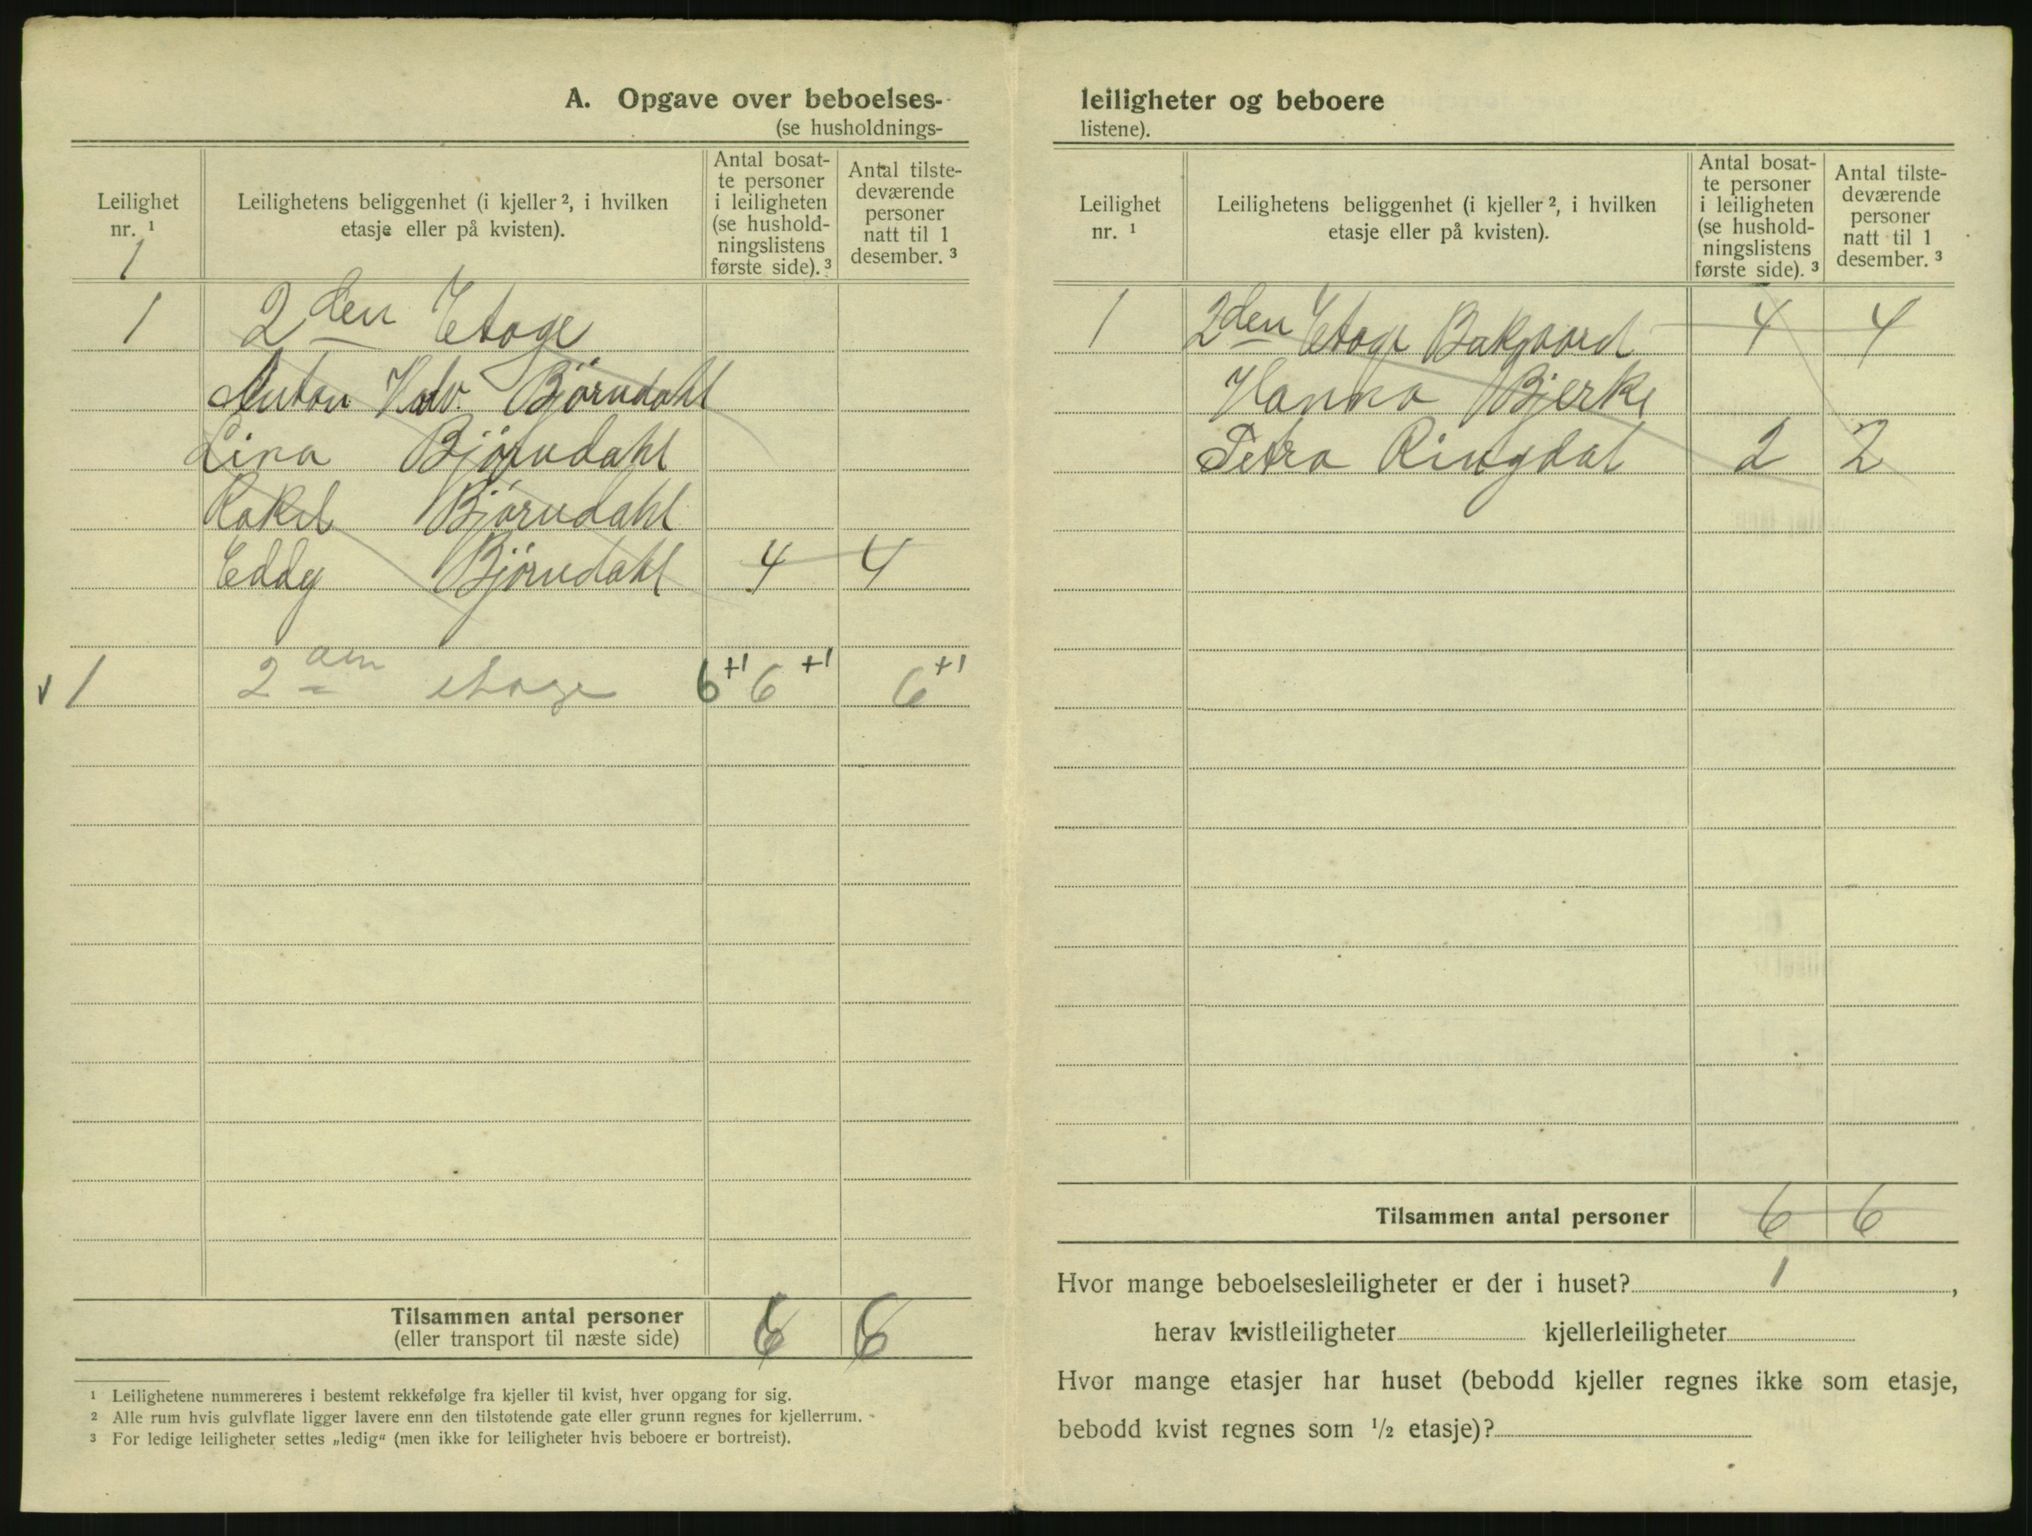 A. Opgave over beboelses-
(se husholdnings-
Leilighet nr. ¹
Leilighetens beliggenhet (i kjeller ², i hvilken etasje eller på kvisten).
Antal bosat-te personer i leiligheten (se hushold-ningslistens første side). ³
Antal tilste-deværende personer natt til 1 desember. ³
1
1 2den Etage
Anton Hdv. Bjørndahl
Lina Bjørndahl
Rakel Bjørndahl
Eddy Bjørndahl 4 4
1 2den etage 6+1 6+1 6+1
Tilsammen antal personer 6 6
(eller transport til næste side)
¹ Leilighetene nummereres i bestemt rekkefølge fra kjeller til kvist, hver opgang for sig.
² Alle rum hvis gulvflate ligger lavere enn den tilstøtende gate eller grunn regnes for kjellerrum.
³ For ledige leiligheter settes „ledig“ (men ikke for leiligheter hvis beboere er bortreist).
leiligheter og beboere
listene).
Leilighet nr. ¹
Leilighetens beliggenhet (i kjeller ², i hvilken etasje eller på kvisten).
Antal bosat-te personer i leiligheten (se hushold-ningslistens første side). ³
Antal tilste-deværende personer natt til 1 desember. ³
1 2den Etage Bakgaard 4 4
Hanna Bjerke
Petra Ringdal 2 2
Tilsammen antal personer 6 6
Hvor mange beboelsesleiligheter er der i huset? 1,
herav kvistleiligheter kjellerleiligheter
Hvor mange etasjer har huset (bebodd kjeller regnes ikke som etasje,
bebodd kvist regnes som ½ etasje)?